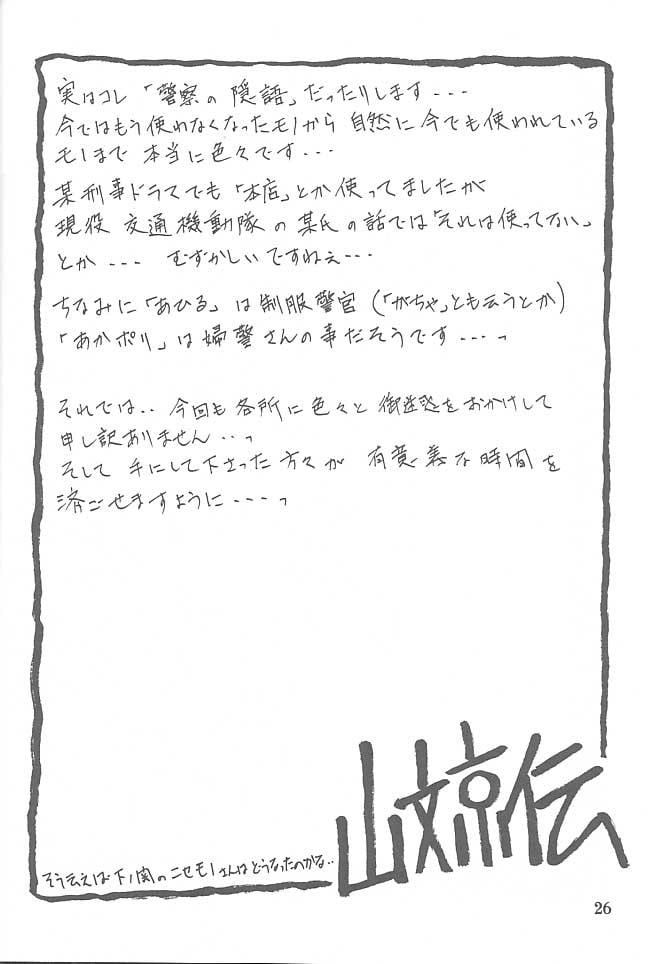 実はコレ「警察の隠語」だったりします・・・
今ではもう使わなくなったモノから 自然に今でも使われている
モノまで 本当に色々です・・・
某刑事ドラマでも「本店」とか使ってましたが
現役 交通機動隊の某氏の話では「それは使ってない」
とか・・・ むずかしいですねぇ・・・
ちなみに「あひる」は制服警官(「がちゃ」とも云うとか)
「あかポリ」は婦警さんの事だそうです・・・っ
それでは・・今回も各所に色々と御迷惑をおかけして
申し訳ありません・・っ
そして 手にして下さった方々が 有意義な時間を
済ごせますように・・・っ
山文京伝
そう云えば下ノ関のニセモノさんはどうなったのかな・・
26